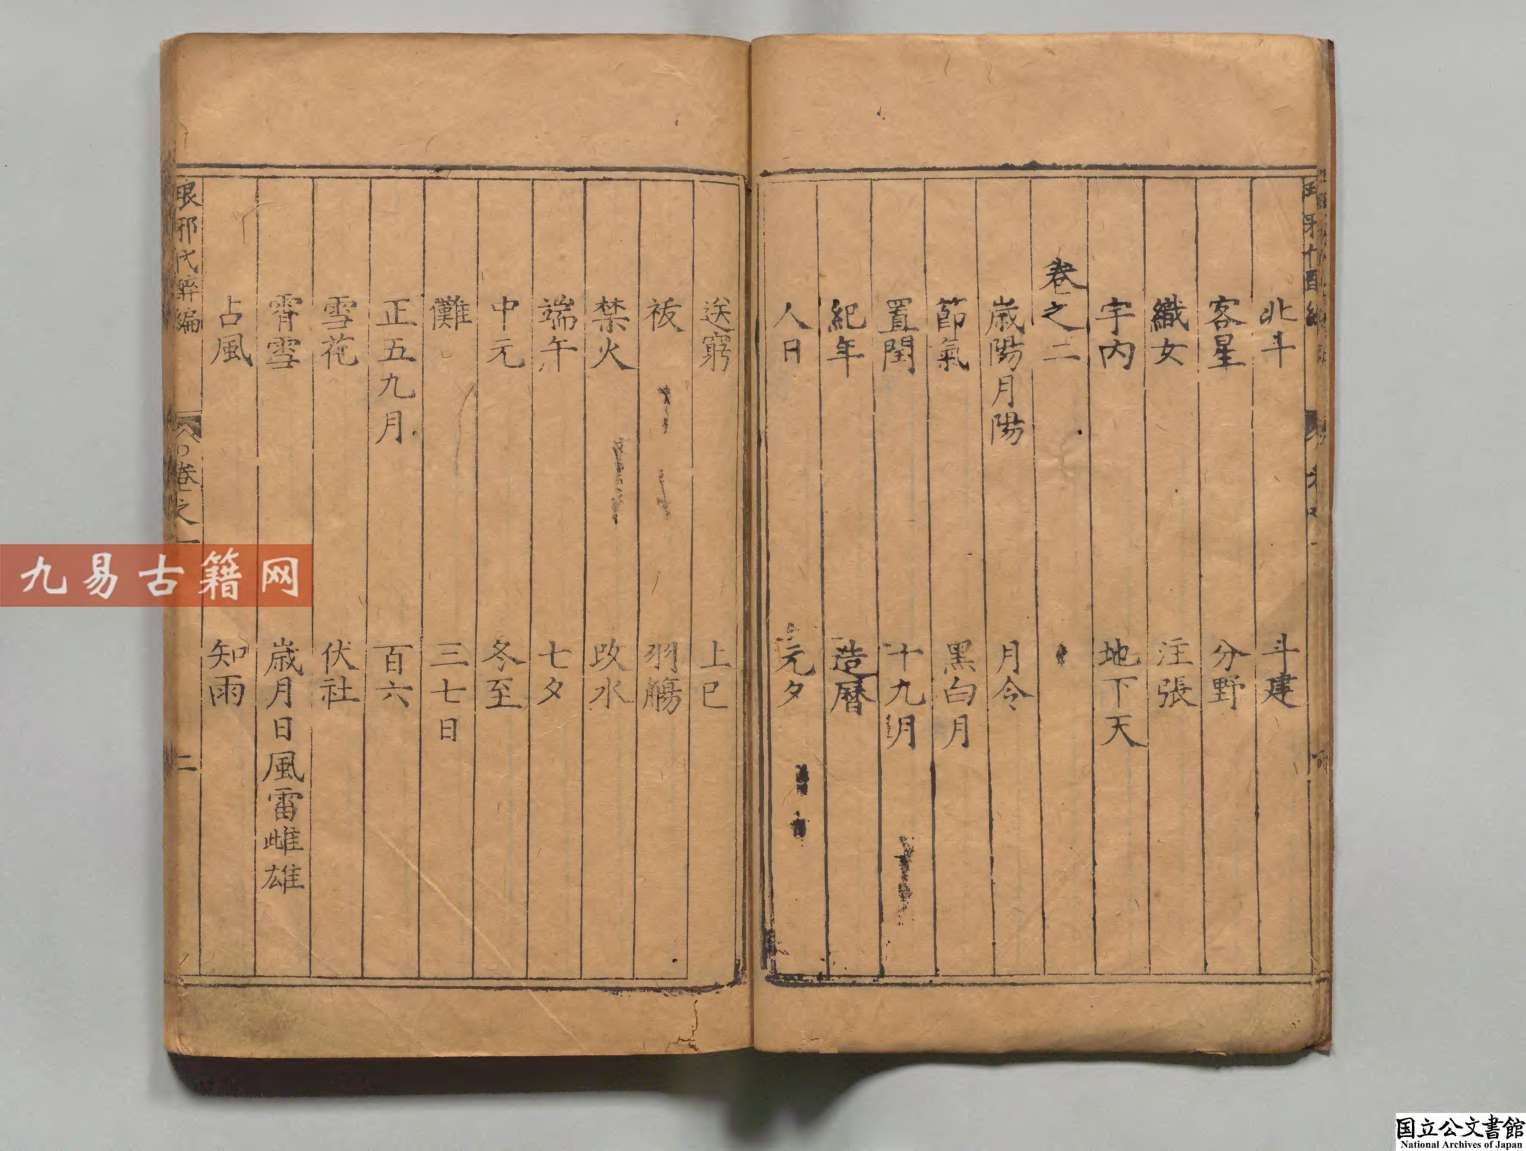 北斗 斗建
客星 分野
織女 注張
宇内 地下天
卷之二
歲陽月陽 月令
節氣 黑白月
置閏 十九朔
紀年 造曆
人日 元夕
送窮 上巳
祓 羽觴
禁火 改水
端午 七夕
中元 冬至
儺 三七日
正五九月 百六
雪花 伏社
霄雪 歲月日風雷雌雄
占風 知雨
卷之一
二
九易古籍网
国立公文書館
National Archives of Japan